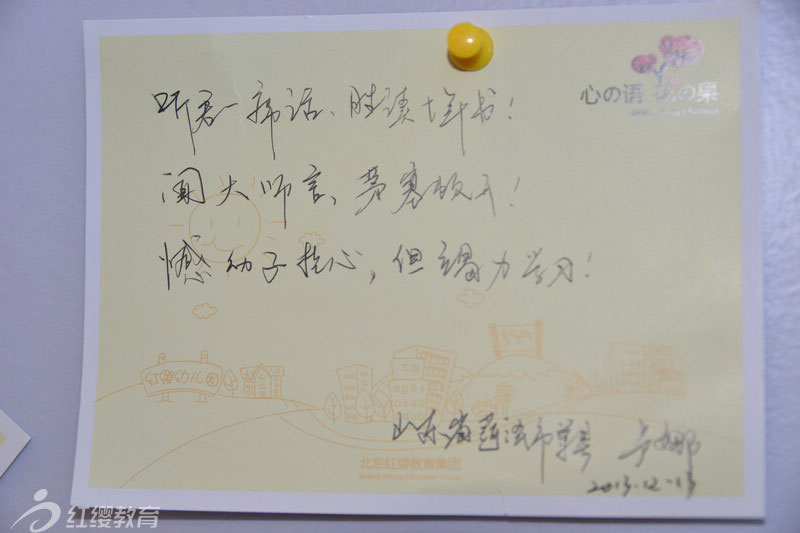 心の语 の果
听君一席话、胜读十年书！
闻大师言、茅塞顿开！
憾幼子扰心，但竭力学习！
红缨幼儿园
山东省 单县
2013.12.13
北京红缨教育集团
Beijing Hoing Education Group
红缨教育